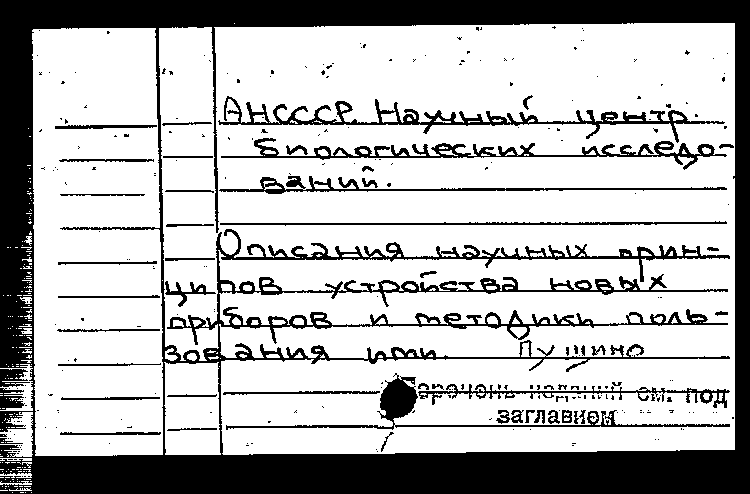 АНСССР. Научный центр
биологических исследо-
ваний.
Описания научных прин-
ципов устройства новых
приборов и методики поль-
зования ими. Пущино
Перечень изданий см. под
заглавием